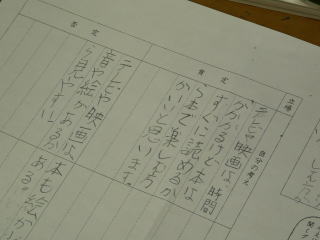 立場
自分の考え
肯定
テレビや映画は、時間
がかかるけど、本は
すぐに読めるか
ら本で楽しむ方
がいいと思います。
否定
テレビや映画は
音や絵があるか
ら見やすい。
本も絵が
ある。